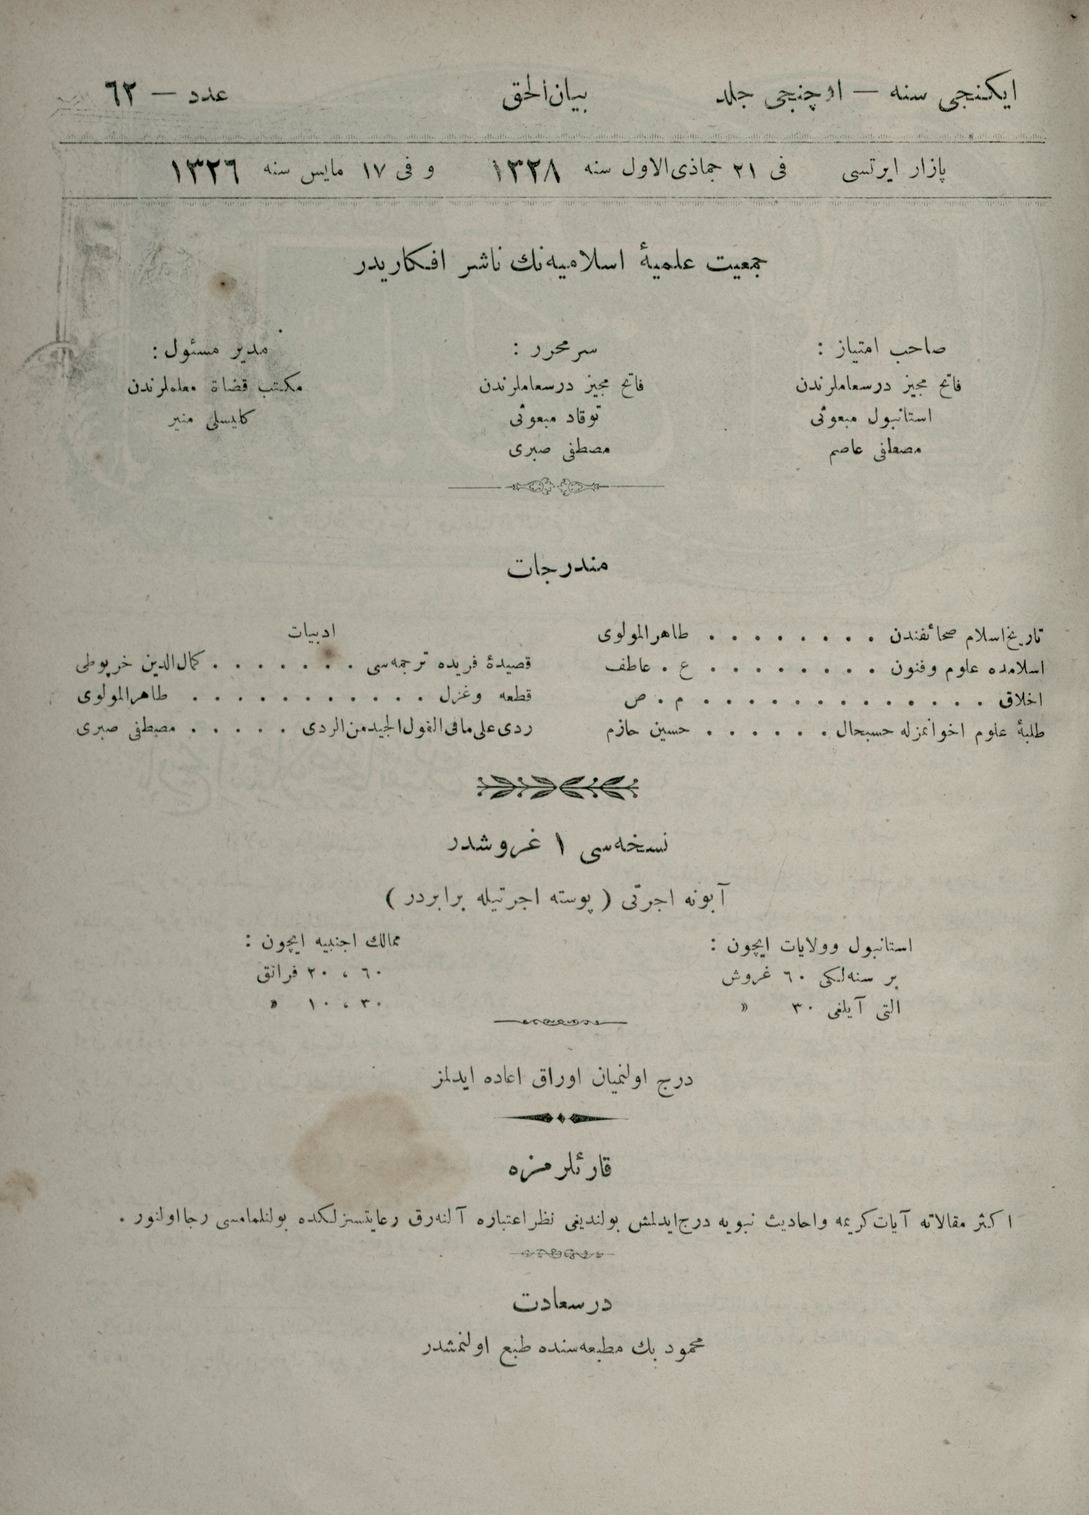 ایكنجی سنه — اوچنجی جلد
بیان‌الحق
عدد — ٦٢
پازار ایرتسی فی ٢١ جماذی‌الاول سنه ١٣٢٨ و فی ١٧ مایس سنه ١٣٢٦
جمعیت علمیهٔ اسلامیه‌نك ناشر افكاریدر
صاحب امتیاز :
فاتح مجیز درسعاملرندن
استانبول مبعوثی
مصطفی عاصم
سرمحرر :
فاتح مجیز درسعاملرندن
توقاد مبعوثی
مصطفی صبری
مدیر مسئول :
مكتب قضاة معلملرندن
كلیسلی منیر
مندرجات
تاریخ اسلام صحائفندن . . . . . . . . طاهرالمولوی
اسلامده علوم وفنون . . . . . . . . ع . عاطف
اخلاق . . . . . . . . . . . . . م . ص
طلبهٔ علوم اخوانمزله حسبحال . . . . . . حسین حازم
ادبیات
قصیدهٔ فریده ترجمه‌سی . . . . . . . كمال‌الدین خرپوطی
قطعه وغزل . . . . . . . . . . . طاهرالمولوی
ردی علی مافی القول الجیدمن الردی . . . . . مصطفی صبری
نسخه‌سی ١ غروشدر
آبونه اجرتی ( پوسته اجرتیله برابردر )
استانبول وولایات ایچون :
بر سنه‌لكی ٦٠ غروش
التی آیلغی ٣٠ »
ممالك اجنبیه ایچون :
٦٠ ، ٢٠ فرانق
٣٠ ، ١٠ »
درج اولنمیان اوراق اعاده ایدلمز
قارئلرمزه
اكثر مقالاته آیات كریمه واحادیث نبویه درج ایدلمش بولندیغی نظر اعتباره آلنه‌رق رعایتسزلكده بولنلمامسی رجا اولنور .
درسعادت
محمود بك مطبعه‌سنده طبع اولنمشدر